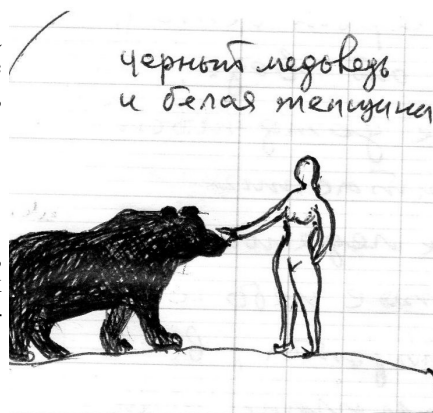 черный медведь
и белая женщина